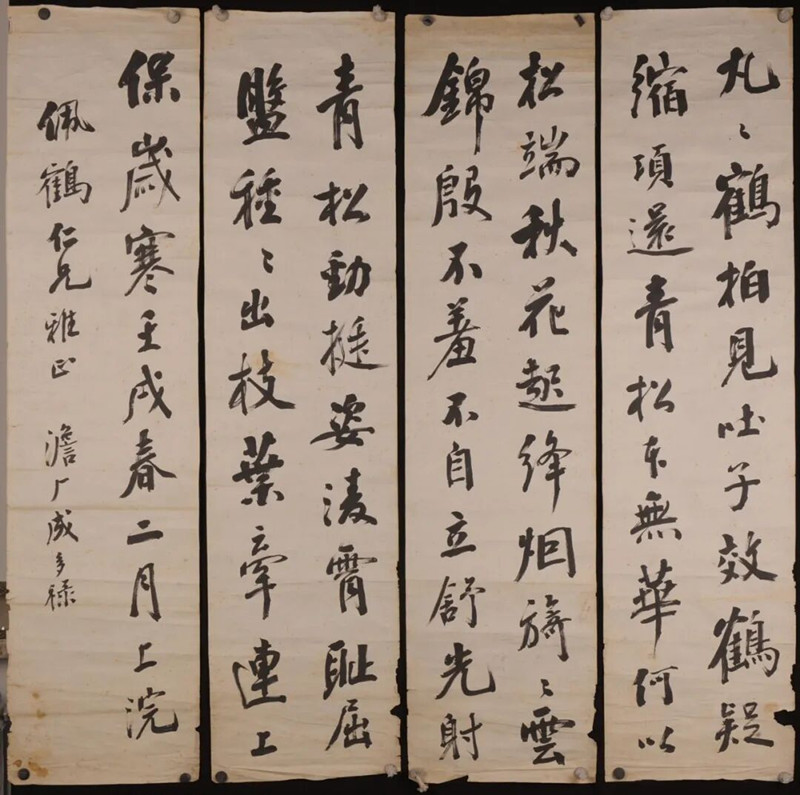 丸〻鶴柏見吐子效鶴疑
縮項還青松本無華何以
松端秋花趂絳烟旖〻雲
錦殷不羞不自立舒光射
青松勁挺姿淩霄耻屈
盤種〻出枝葉牽連上
保歲寒壬戌春二月上浣
佩鶴仁兄雅正 澹厂成多祿